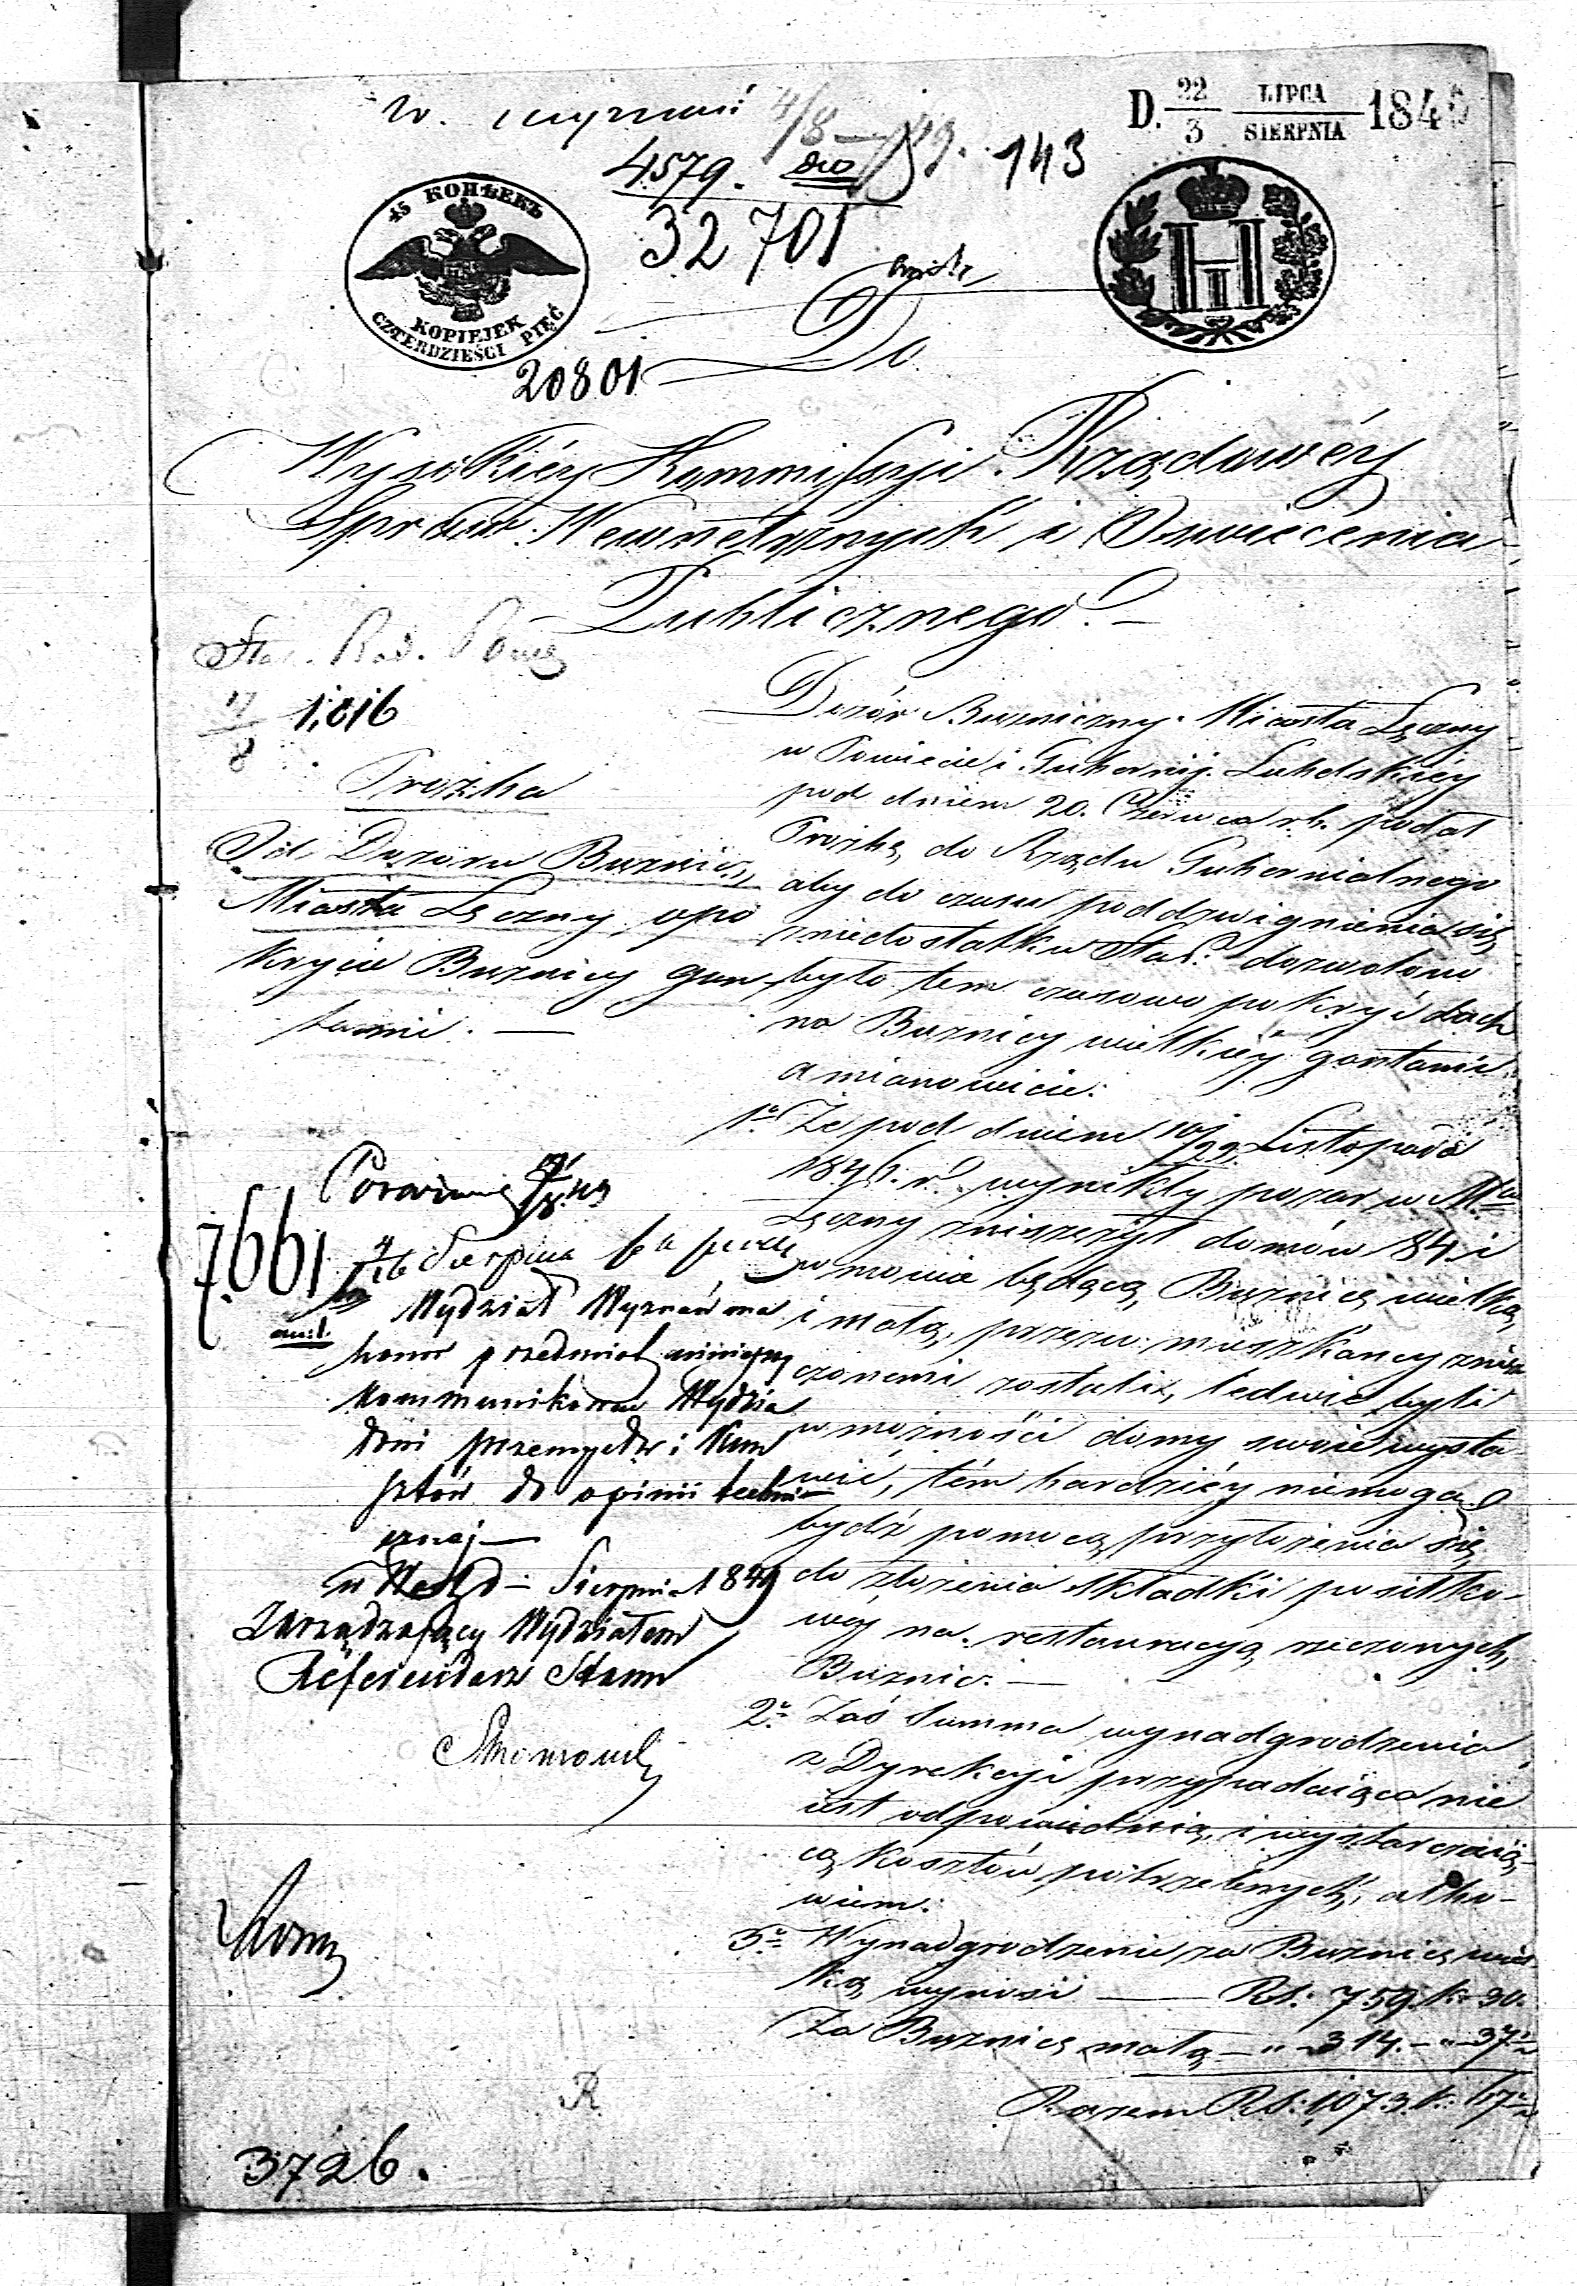 w.
4/8
D. 22/3 LIPCA/SIERPNIA 184
4579.
143
32701
45 КОПѢЕКЪ
KOPIEJEK
CZTERDZIEŚCI PIĘĆ
H I
Do
20801
Wysokiéy Kommissyi Rządowéy
Spraw Wewnętrznych i Oswiecenia
Publicznego.
17/8 1,816
Prozba
Od Dozoru Buznicz,
Miasta Lęczny, o po
krycie Buznicy gon
tami. —
Dozór Buzniczny Miasta Lęczny
w Powiecie i Gubernij Lubelskiéy
pod dniem 20. Czerwca r.b. podał
Prozbę do Rządu Gubernialnego
aby do czasu poddzwignienia się
z niedostatku dozwolono
było tem czasowo pokryć dach
na Buznicy wielkiéy gontami
a mianowicie:
1° Że pod dniem 10/22 Listopada
1846 r. wynikły pożar w Mcie
Lęczny zniszczył domów 84 i
w mowie będącą Buznicę wielką
i małą, przezco mieszkańcy znisz
czonemi zostali, ledwie byli
w możności domy swoie wysta
wić, tém bardziéy niemogą
bydź pomocą przyłożenia się
do złożenia składki posiłko-
wéy na restauracyą rzeczonych
Buznic. —
2° Zaś Summa wynadgrodzenia
z Dyrekcyi przypadaiąca nie
iest odpowiednią i wystarczaią-
cą kosztów potrzebnych, albo-
wiem:
3° Wynadgrodzenie za Buznicę wiel
ką wynosi — RS: 759 k. 30.
Za Buznicę małą — " 314. — " 37½
Razem RS: 1073 k: 67½
7661
4/16 Sierpnia
Wydział Wyznań ma
honor przedmiot niniejszy
kommunikować Wydzia
łowi przemysłu i Kun
sztów do opinii techni-
cznej —
w Warsz. d — Sierpnia 1849
Zarządzający Wydziałem
Referendarz Stanu
R
3726.